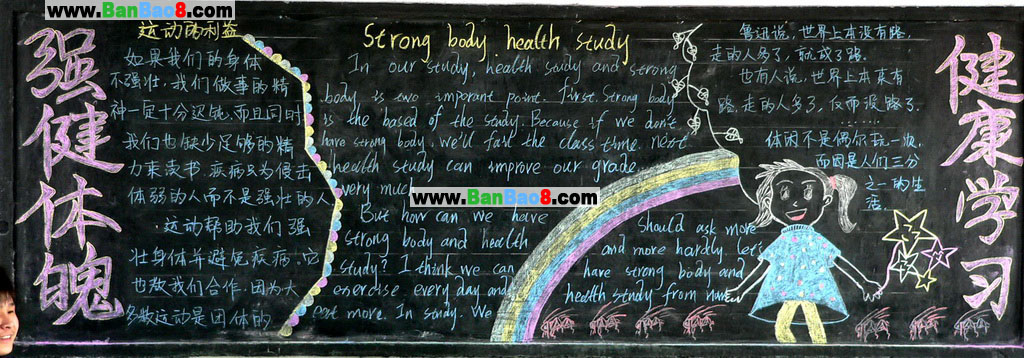 www.BanBao8.com
强健体魄
运动的利益
如果我们的身体
不强壮,我们做事的精
神一定十分迟钝,而且同时
我们也缺少足够的精
力来读书。疾病只为侵击
体弱的人而不是强壮的人
运动帮助我们强
壮身体并避免疾病,它
也教我们合作,因为大
多数运动是团体的
Strong body health study
In our study, health study and strong
body is two imporant point. first. Strong body
is the based of the study. Because if we don't
have strong body. we'll fast the class time. next
health study can improve our grade
very muc
But how can we have
strong body and health
study? I think we can
exercise every day and
eat more. In study. We
should ask more
and more hardly. let's
have strong body and
health study from now
www.BanBao8.com
鲁迅说,世界上本没有路,
走的人多了,就成了路.
也有人说,世界上本来有
路,走的人多了,反而没路了.
不是偶尔玩一次,
而因是人们三分
之一的生
活.
健康学习